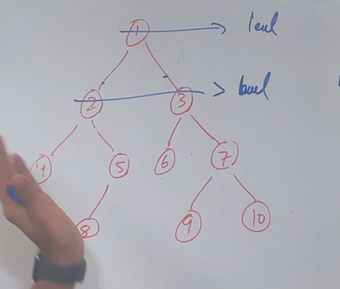 1 level
2 3 level
4 5 6 7
8 9 10